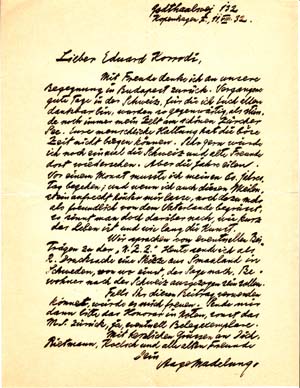 Godthaabsvej 132
Kopenhagen F. 11. VII. 32.
Lieber Eduard Korrodi,
Mit Freude denke ich an unsere
Begegnung in Budapest zurück.
gute Tage in der Schweiz, für die ich Euch allen
dankbar bin, werden so gegenwärtig, als stün-
de noch immer mein Zelt am schönen Zürcher
See. Eure menschliche Haltung hat die böse
Zeit nicht biegen können. Sehr gern würde ich
noch einmal die Schweiz und alte Freunde
dort wiedersehen. Aber die Jahre eilen!
Vor einem Monat musste ich meinen 60. Jahres
Tag begehen; und wenn ich auch diesen
als pfundlich von dem Vaterland begrüsst
es sinnt man doch darüber nach, wie kurz
das Leben ist und wie lang die Kunst.
Wir sprachen von eventuellen Bei-
trägen zu der N.Z.Z. Heute sende ich als
R. Drucksache eine Skizze aus Smaaland in
Schweden, von wo einst, der Sage nach, Be-
wohner nach der Schweiz ausgezogen sein sollen.
Falls Ihr diesen Beitrag verwenden
könnet, würde es mich freuen. Sende mir
dann bitte das Honorar in Noten, sonst das
Mst. zurück, ja, eventuell Belegexemplare.
Mit herzlichen Grüssen an Dich,
Rietmann, und alle alten Freunde
Dein
Aage Madelung